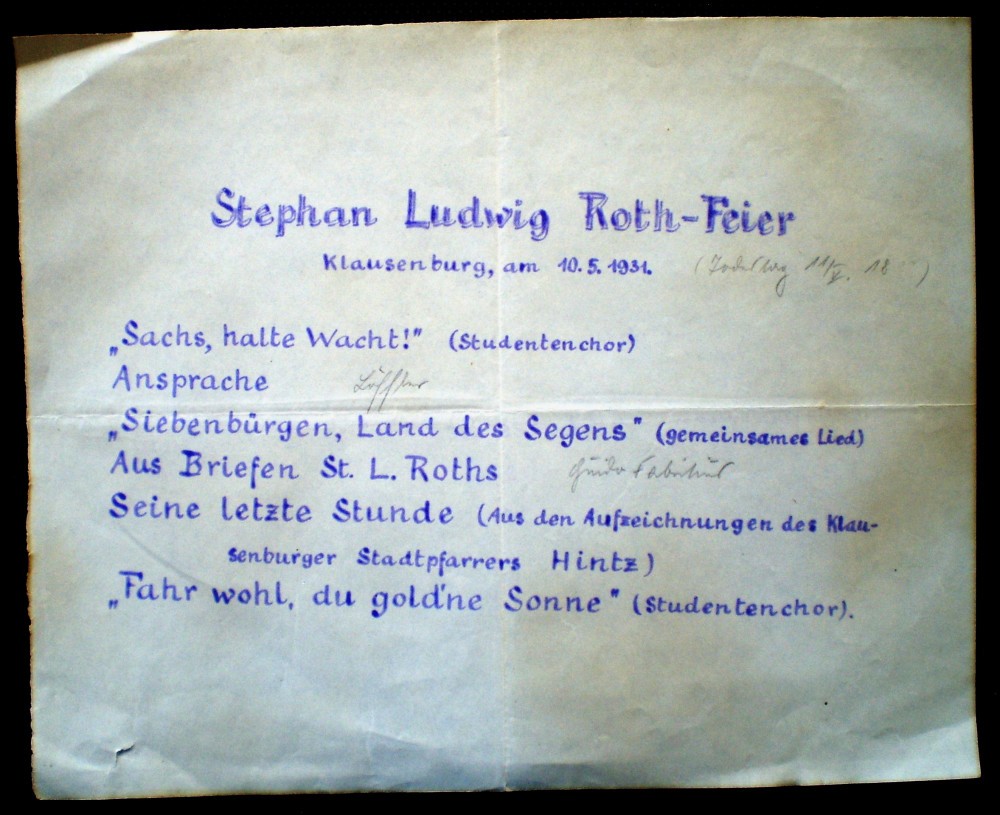 Stephan Ludwig Roth-Feier
Klausenburg, am 10.5.1931. (Todestag 11/V. 18 )
„Sachs, halte Wacht!" (Studentenchor)
Ansprache Löffler
„Siebenbürgen, Land des Segens" (gemeinsames Lied)
Aus Briefen St. L. Roths Guido Fabritius
Seine letzte Stunde (Aus den Aufzeichnungen des Klau-
senburger Stadtpfarrers Hintz)
„Fahr wohl, du gold'ne Sonne" (Studentenchor).